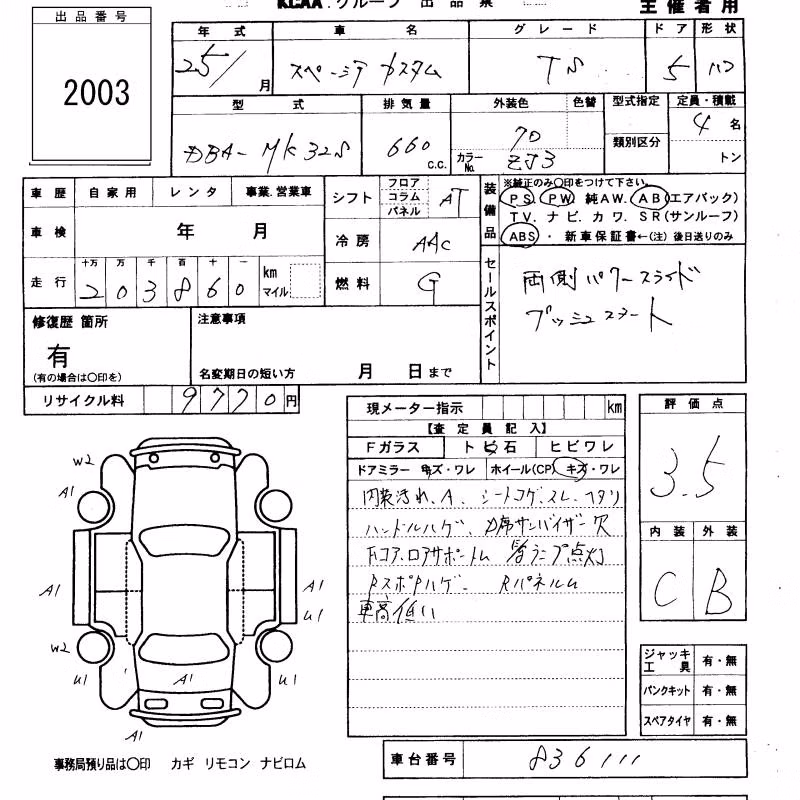 出品番号
2003
KCAA.グループ 出品票
主催者用
年式 車名 グレード ドア 形状
25/ 月 スペーシア カスタム TS 5 HB
型式 排気量 外装色 色替 型式指定 定員・積載
DBA-MK32S 660 c.c. 70 カラーNo. ZJ3 類別区分 4名 トン
車歴 自家用 レンタ 事業.営業車
シフト フロア コラム パネル AT
装備品
※純正のみ○印をつけて下さい。
PS. PW 純AW. AB(エアバック)
TV. ナビ. カワ. SR(サンルーフ)
ABS・新車保証書←(注) 後日送りのみ
車検 年 月
冷房 AAC
走行 十万 万 千 百 十 一
203860 km マイル
燃料 G
セールスポイント
両側パワースライド
プッシュスタート
修復歴 箇所
有
(有の場合は○印を)
注意事項
名変期日の短い方 月 日まで
リサイクル料 9770円
現メーター指示 km
【査定員記入】
Fガラス トビ石 ヒビワレ
ドアミラー キズ・ワレ ホイール(CP) キズ・ワレ
内装汚れ、A、シートコゲ.スレ.ヘタリ
ハンドルハゲ、D席サンバイザー穴
Fコア.ロアサポートム 警ランプ点灯
RスポPハゲ、Rパネルム
車高低い
評価点
3.5
内装 外装
C B
W2
A1
A1
A1
U1
W2
U1
A1
U1
A1
ジャッキ工具 有・無
パンクキット 有・無
スペアタイヤ 有・無
事務局預り品は○印 カギ リモコン ナビロム
車台番号 836111